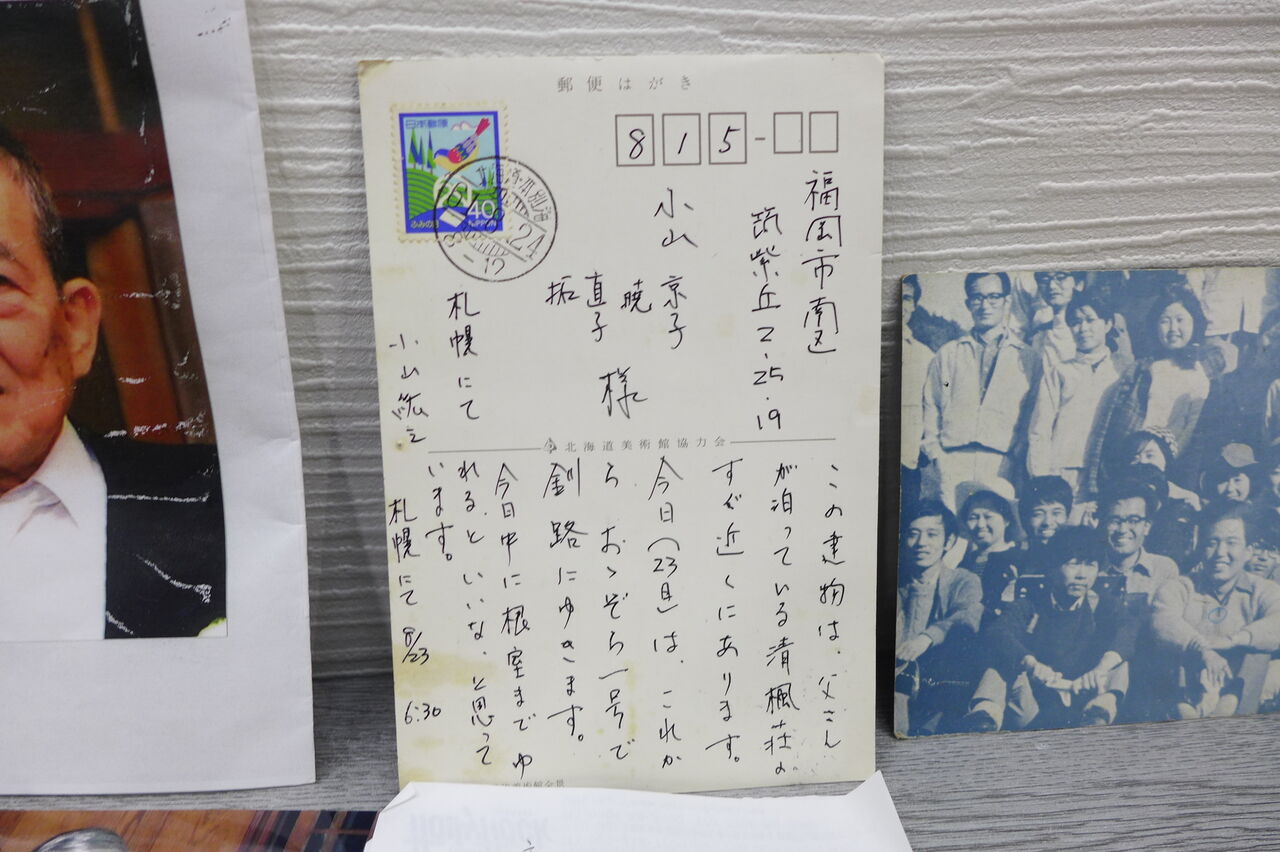 郵便はがき
日本郵便
40
NIPPON
ふみの日
24
815-
福岡市南区
筑紫丘2.25.19
小山 京子
暁
直子
拓
様
札幌にて
小山紘之
北海道美術館協力会
この建物は、父さん
が泊っている清楓荘の
すぐ近くにあります。
今日(23日)は、これか
ら おゝぞら一号で
釧路にゆきます。
今日中に根室までゆ
れるといいな、と思って
います。
札幌にて 8/23 6:30